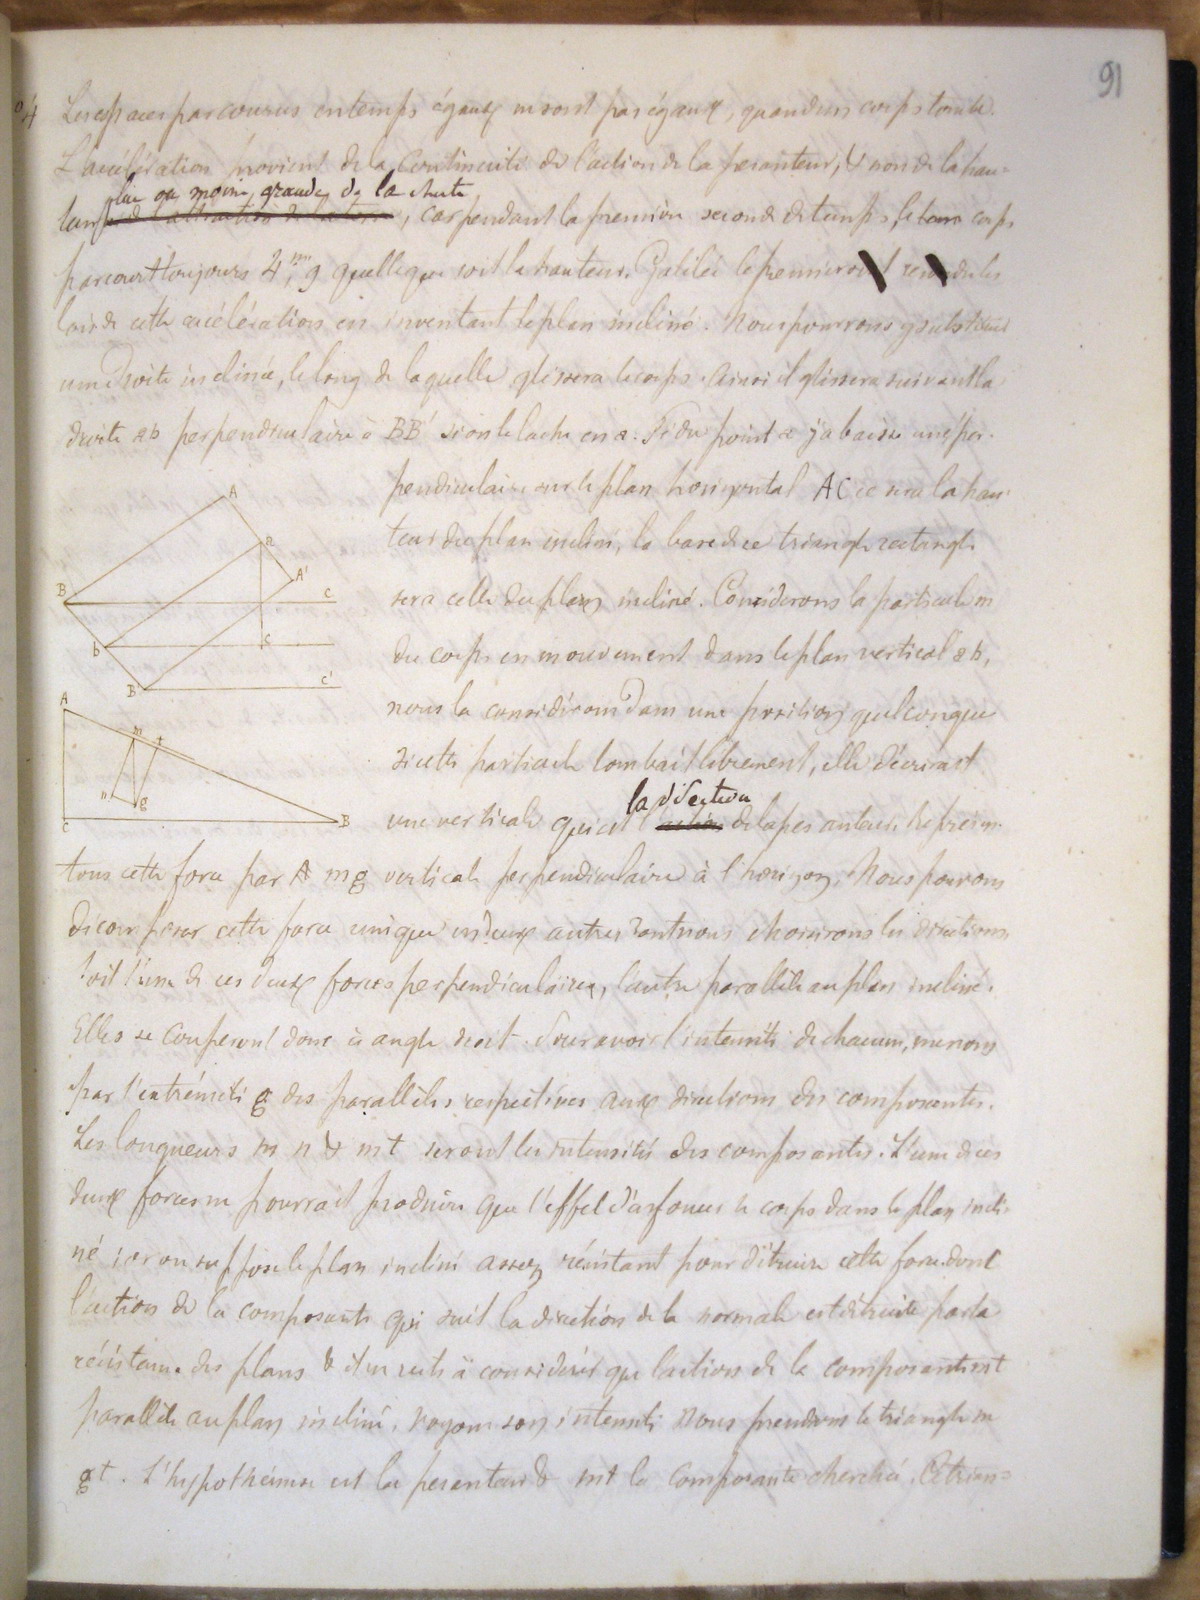 91
4 Les espaces parcourus en temps égaux ne sont pas égaux, quand un corps tombe.
L'accélération provient de la Continuité de l'action de la pesanteur, & non de la hau=
plus ou moins grande de la chute
teur , car pendant la première seconde de temps, le corps
parcourt toujours 4,m 9 quelle que soit la hauteur. Galilée le premier
lois de cette accélération en inventant le plan incliné. Nous pourrons y substituer
une droite inclinée, le long de laquelle glissera le corps. Ainsi il glissera suivant la
droite ab perpendiculaire à BB' si on le lache en a. Si du point a j'abaisse une per-
pendiculaire sur le plan horizontal AC ce sera la hau-
teur du plan incliné, la base de ce triangle rectangle
sera celle du plan incliné. Considérons la particule m
du corps en mouvement dans le plan vertical ab,
nous la considérons dans une position quelconque
si cette particule tombait librement, elle décrirait
la direction
une verticale qui est de la pesanteur. Représen-
tons cette force par mg verticale perpendiculaire à l'horizon. Nous pouvons
décomposer cette force unique en deux autres dont nous choisirons les directions
soit l'une de ces deux forces perpendiculaire, l'autre parallèle au plan incliné.
Elles se couperont donc à angle droit. Pour avoir l'intensité de chacune, menons
par l'extrémité g des parallèles respectives aux directions des composantes.
Les longueurs m n & mt seront les intensités des composantes. L'une de ces
deux forces ne pourrait produire que l'effet d'enfoncer le corps dans le plan incli-
né or on suppose le plan incliné assez résistant pour détruire cette force. dont
l'action de la composante qui suit la direction de la normale est détruite par la
résistance des plans & il ne reste à considérer que l'action de la composante mt
parallèle au plan incliné, voyons son intensité. Nous prendrons le triangle m
gt. L'hypothénuse est la pesanteur & mt la Composante cherchée. Ce trian=
A
a
A'
B
C
b
c
B'
C'
A
m
t
n
g
C
B